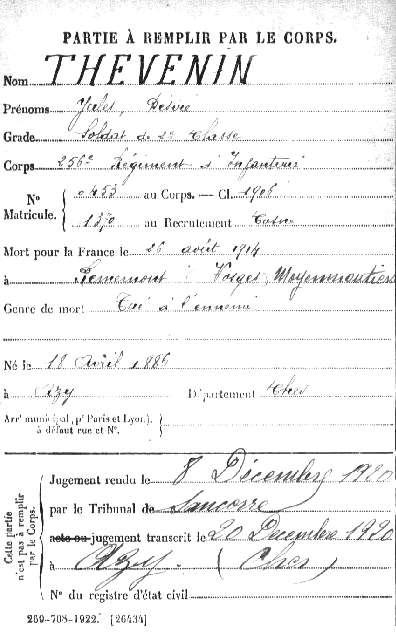 PARTIE À REMPLIR PAR LE CORPS.
Nom THEVENIN
Prénoms Jules, Désiré
Grade Soldat de 2e Classe
Corps 256e Régiment d'Infanterie
No Matricule. 0453 au Corps. — Cl. 1906
1370 au Recrutement
Mort pour la France le 26 août 1914
à Vosges, Moyenmoutier
Genre de mort Tué à l'ennemi
Né le 18 Avril 1886
à Azy Département Cher
Arrt municipal (pr Paris et Lyon),
à défaut rue et No.
Cette partie n'est pas à remplir par le Corps.
Jugement rendu le 8 Décembre 1920
par le Tribunal de Sancerre
acte ou jugement transcrit le 20 Décembre 1920
à Azy (Cher)
No du registre d'état civil
269-708-1922. [26434]